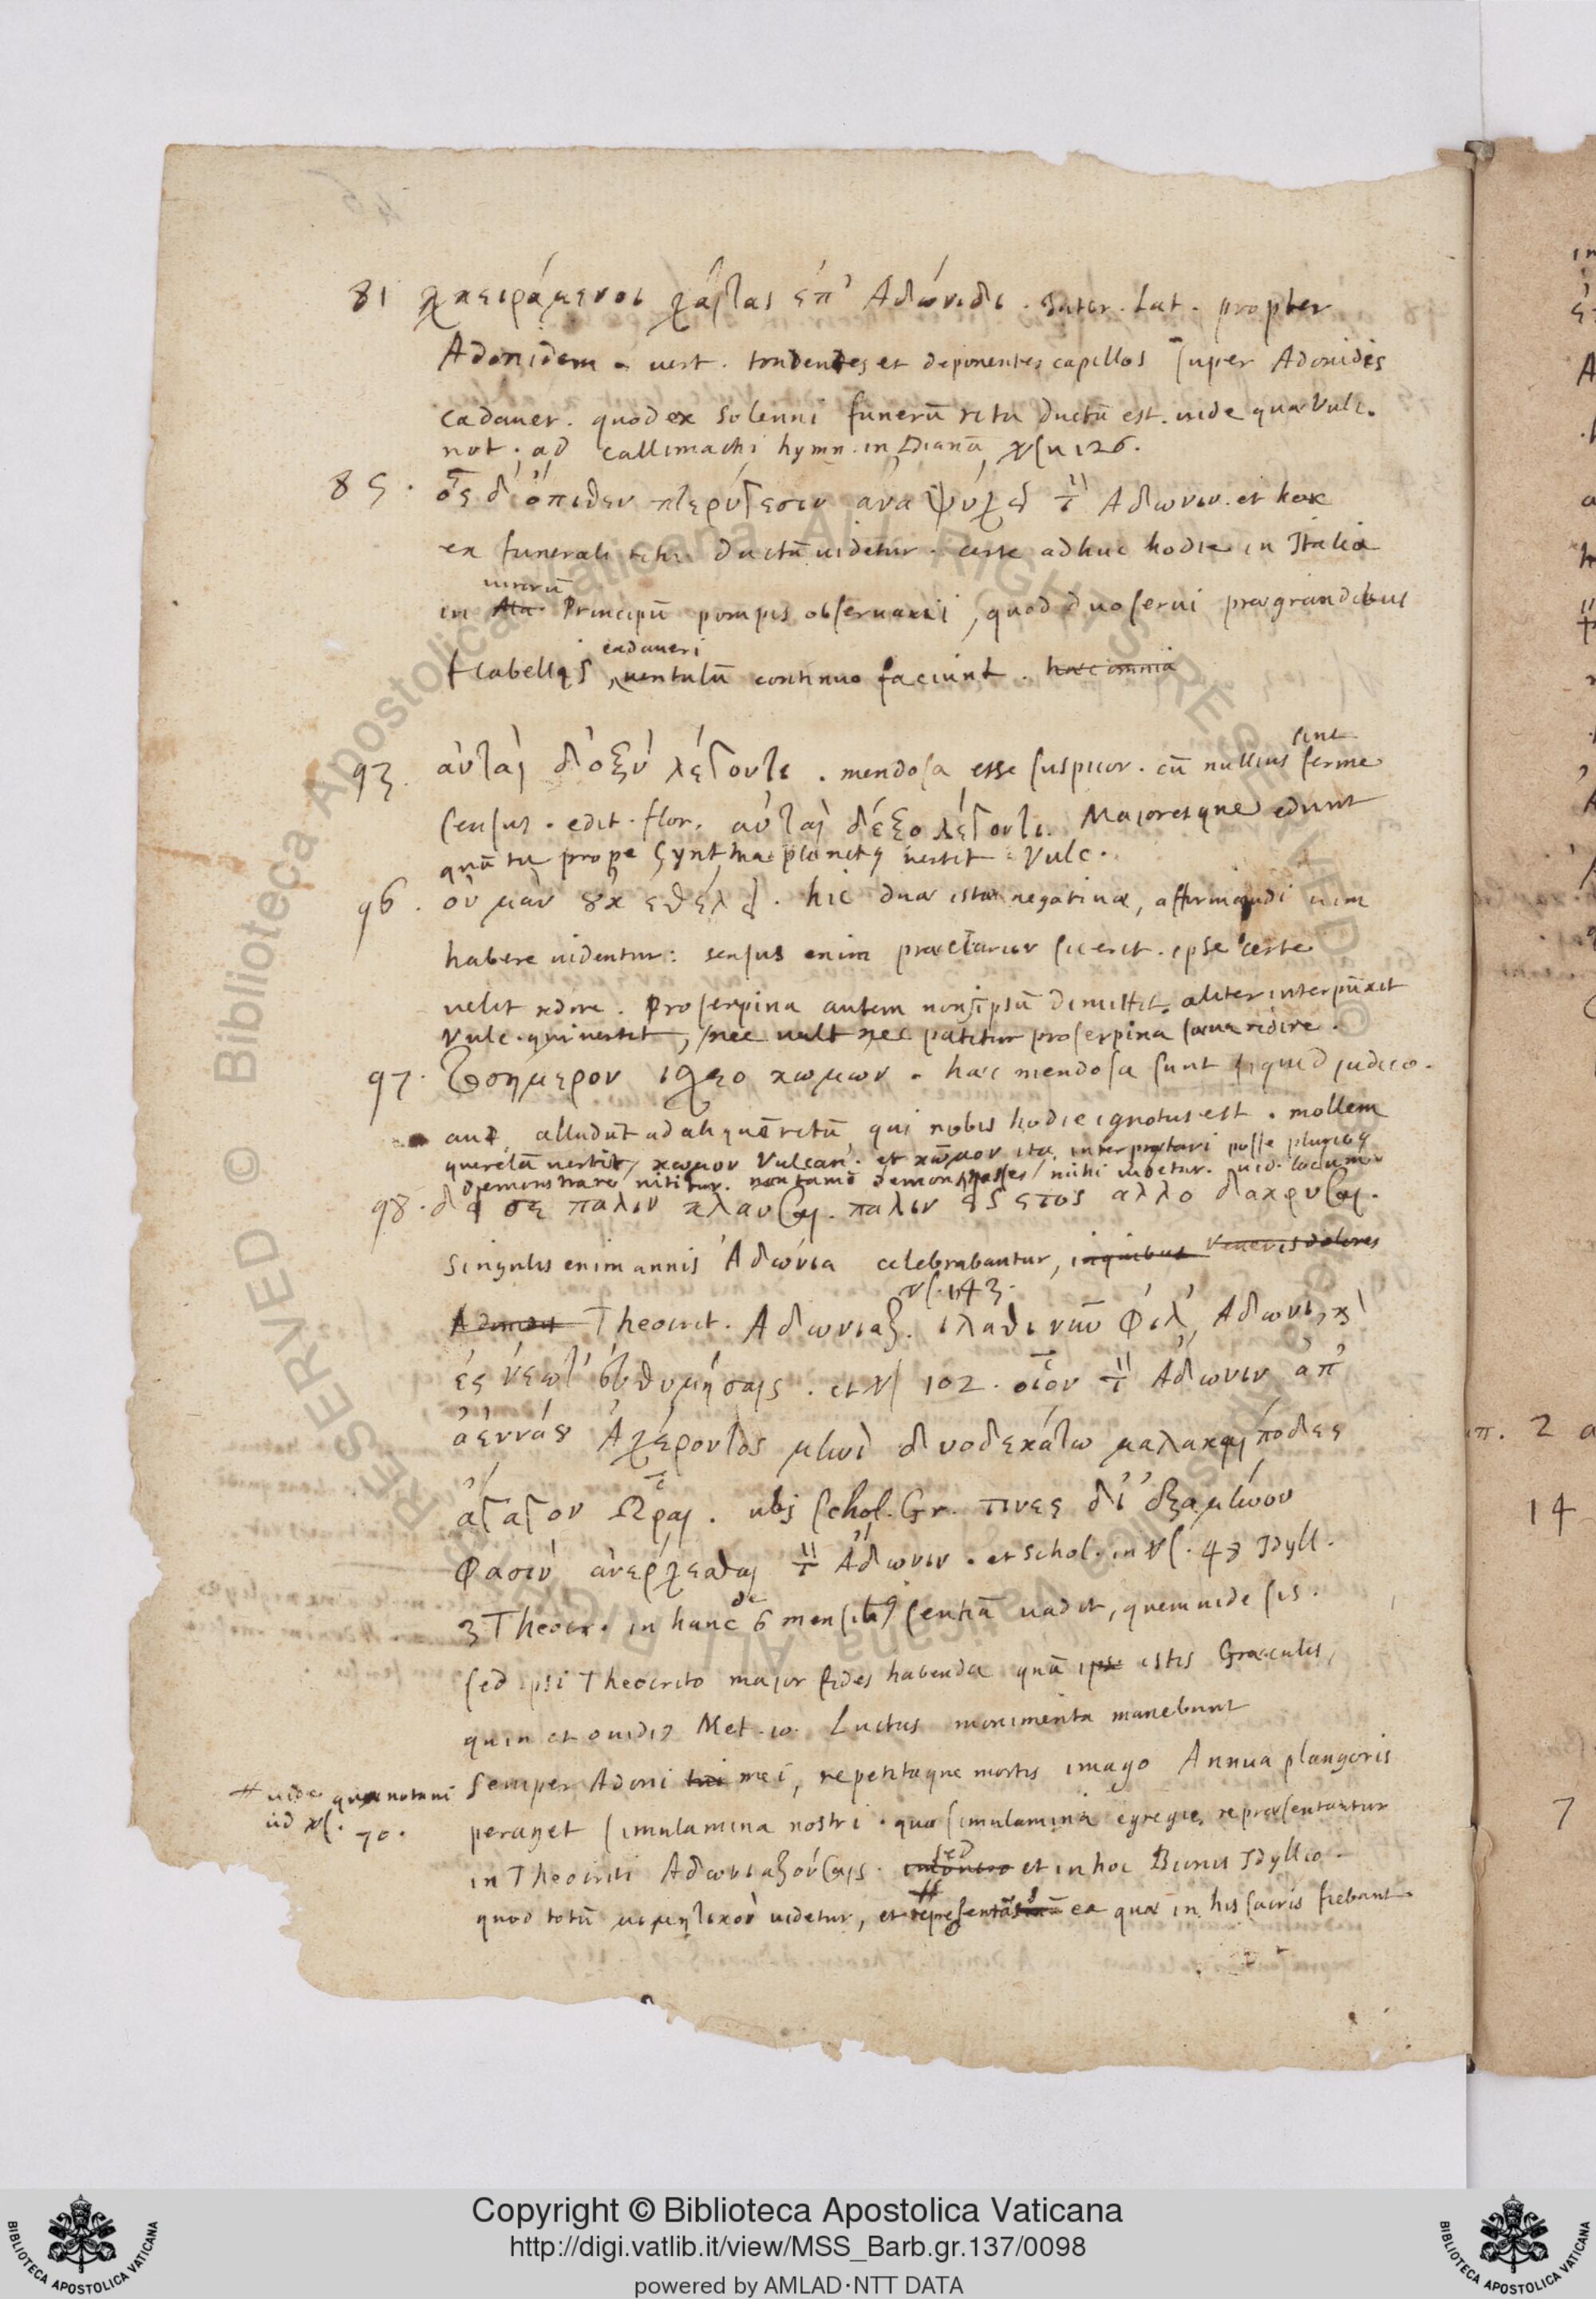 81 κειράμενοι χαίτας ἐπ' Ἀδώνιδι. Inter. Lat. propter
Adonidem. uert. tondentes et deponentes capillos super Adonidis
cadauer. quod ex solenni funerū ritu ductū est. uide quae Vulc.
not. ad Callimachi hymn. in Dianā 126.
85. ὃς δ' ὄπιθεν πτερύγεσιν ἀναψύχει τ Ἄδωνιν. et hoc
ex funerali ritu ductū uidetur. certe adhuc hodie in Italia
in uirorū Principū pompis obseruaui, quod duo serui praegrandibus
flabellis cadaueri uentulū continuo faciunt. haec omnia
93. αὐταὶ δ' ὀξύ λέγοντι. mendosa esse suspicor. cū nullius sint ferme
sensus. edit. flor. αὐταὶ δέξο λέγοντι. Maioresque edunt
quā tu prope Cynthia planctus uertit Vulc.
96. οὐ μὰν οὐκ ἐθέλει. hic duae istae negatiuae, affirmandi uim
habere uidentur: sensus enim praeclarior sic erit. ipse certe
uelit redire. Proserpina autem non ipsū dimittit. aliter interpūxit
Vulc. qui uertit, nec uult nec patitur proserpina saeua redire.
97. τοσημερον ισχεο κωμων. haec mendosa sunt si quid judico.
aut alludūt ad aliquē ritū, qui nobis hodie ignotus est. mollem
querelā uertit κωμον Vulcan. et κῶμον ita interpretari posse pluribus
demonstrare nititur. non tamē demonstrasse mihi uidetur. uid. locum
98. δει σε παλιν κλαυσαι. παλιν εις ετος αλλο δακρυσαι.
Singulis enim annis Ἀδώνια celebrabantur, in quibus Veneris dolores
Theocrit. Αδωνιαζ. 143. ιλαθι νῦν φίλ' Αδωνι, κ
ἐς νέωτ' εὐθυμήσαις. et 102. οἷον τ Ἄδωνιν ἀπ'
ἀεννάου Ἀχέροντος μηνὶ δυοδεκάτῳ μαλακαίποδες
ἄγαγον Ὧραι. ubi Schol. Gr. τινες δι' ἑξαμήνου
φασιν ἀνέρχεσθαι τ Ἄδωνιν. et Schol. in 48 Idyll.
3 Theocr. in hanc de 6 mensibus sentētiā uadit, quem uide sis.
sed ipsi Theocrito major fides habenda quā ipsi istis Graeculis,
quin et ouidius Met. 10. Luctus monimenta manebunt
Semper Adoni tui mei, repetitaque mortis imago Annua plangoris
# uide quae notaui
ad 70.
peraget simulamina nostri. quae simulamina egregie repraesentantur
in Theocriti Αδωνιαζούσαις. sed et in hoc Bionis Idyllio.
quod totū μιμητικον uidetur, et repraesentās ea quae in his sacris fiebant.
Copyright © Biblioteca Apostolica Vaticana
http://digi.vatlib.it/view/MSS_Barb.gr.137/0098
powered by AMLAD·NTT DATA